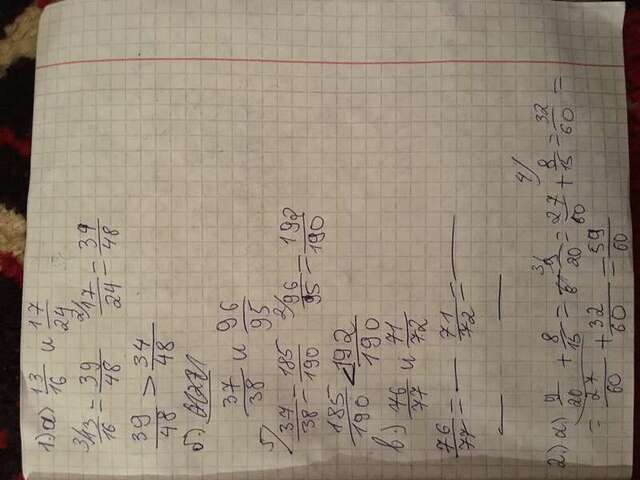 1) а) 13/16 и 17/24
3/ 13/16 = 39/48 2/ 17/24 = 34/48
39/48 > 34/48
б)
37/38 и 96/95
5/ 37/38 = 185/190 2/ 96/95 = 192/190
185/190 < 192/190
в) 76/77 и 71/72
76/77 = — 71/72 = —
— —
2.) а) 9/20 + 8/15 = 3/ 9/20 = 27/60 + 4/ 8/15 = 32/60 =
= 27/60 + 32/60 = 59/60